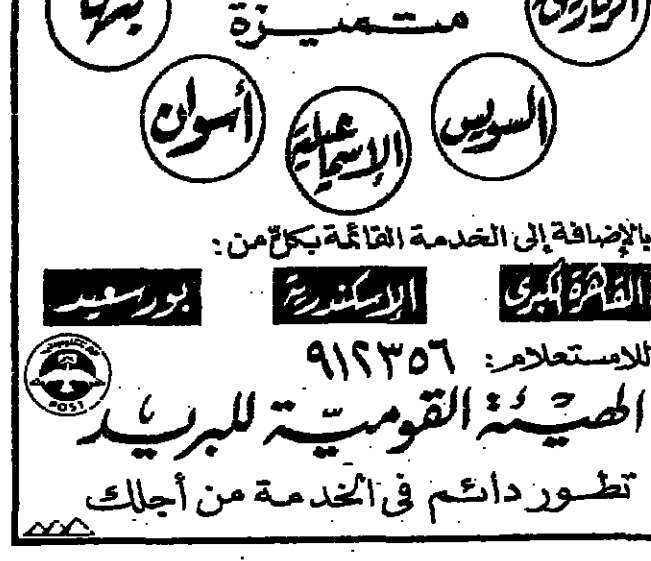 الزقازيق
متميزة
بنها
السويس
الإسماعيلية
أسوان
بالإضافة إلى الخدمة القائمة بكل من :
القاهرة الكبرى
الإسكندرية
بورسعيد
للاستعلام : ٩١٢٣٥٦
POST
الهيئة القومية للبريد
تطور دائم فى الخدمة من أجلك